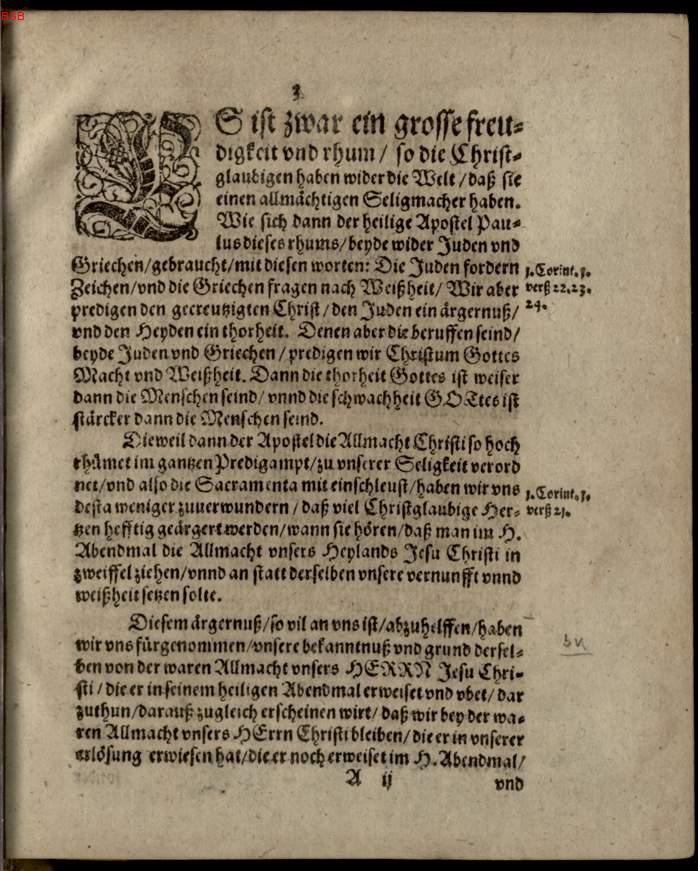 BsB
3
ES ist zwar ein grosse freu-
digkeit vnd rhum / so die Christ-
glaubigen haben wider die Welt / daß sie
einen allmächtigen Seligmacher haben.
Wie sich dann der heilige Apostel Pau-
lus dieses rhums / beyde wider Juden vnd
Griechen / gebraucht / mit diesen worten: Die Juden fordern
1. Corint. 1.
Zeichen / vnd die Griechen fragen nach Weißheit / Wir aber
verß 22. 23.
predigen den gecreutzigten Christ / den Juden ein ärgernuß /
24.
vnd den Heyden ein thorheit. Denen aber die beruffen seind /
beyde Juden vnd Griechen / predigen wir Christum Gottes
Macht vnd Weißheit. Dann die thorheit Gottes ist weiser
dann die Menschen seind / vnnd die schwachheit GOTtes ist
stärcker dann die Menschen seind.
Dieweil dann der Apostel die Allmacht Christi so hoch
rhümet im gantzen Predigampt / zu vnserer Seligkeit verord
net / vnd also die Sacramenta mit einschleust / haben wir vns
1. Corint. 1.
desta weniger zuuerwundern / daß viel Christglaubige Her-
verß 21.
tzen hefftig geärgert werden / wann sie hören / daß man im H.
Abendmal die Allmacht vnsers Heylands Jesu Christi in
zweiffel ziehen / vnnd an statt derselben vnsere vernunfft vnnd
weißheit setzen solte.
Diesem ärgernuß / so vil an vns ist / abzuhelffen / haben
wir vns fürgenommen / vnsere bekanntnuß vnd grund dersel-
ben von der waren Allmacht vnsers HERRN Jesu Chri-
sti / die er in seinem heiligen Abendmal erweiset vnd vbet / dar
zuthun / darauß zugleich erscheinen wirt / daß wir bey der wa-
ren Allmacht vnsers HErrn Christi bleiben / die er in vnserer
erlösung erwiesen hat / die er noch erweiset im H. Abendmal /
A ij
vnd